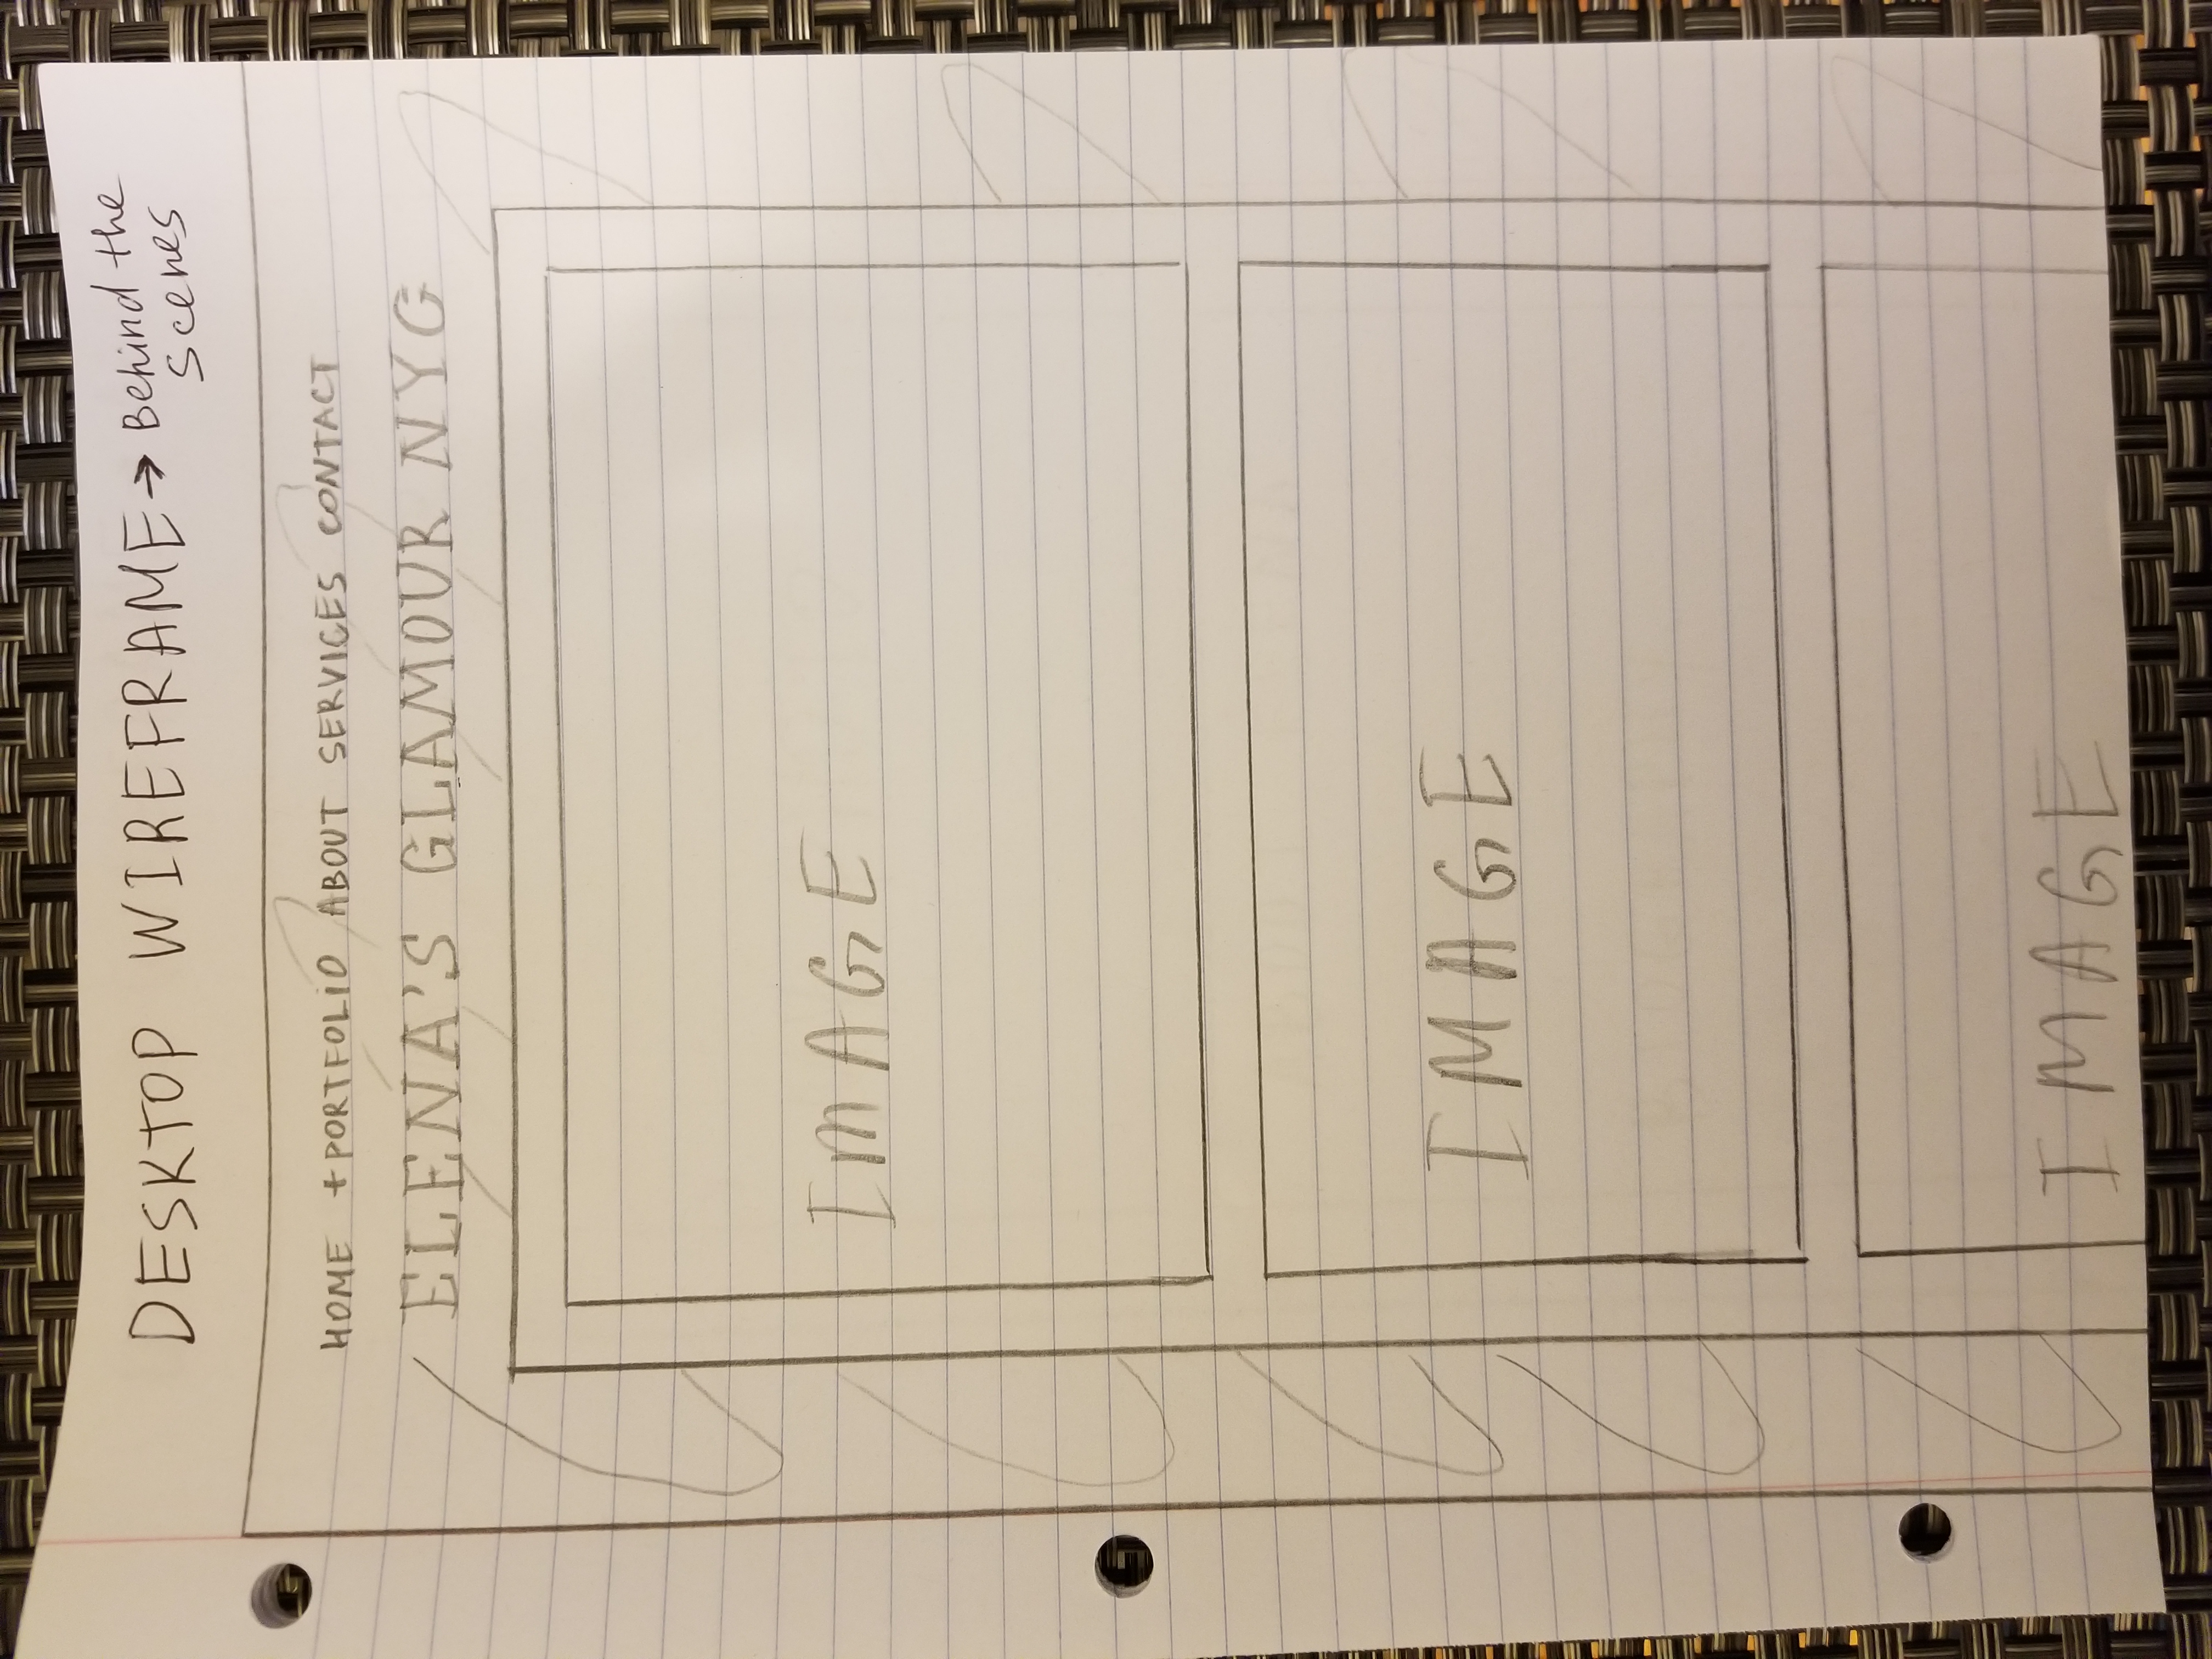 DESKTOP WIREFRAME → Behind the
Scenes
HOME +PORTFOLIO ABOUT SERVICES CONTACT
ELENA'S GLAMOUR NYC
IMAGE
IMAGE
IMAGE